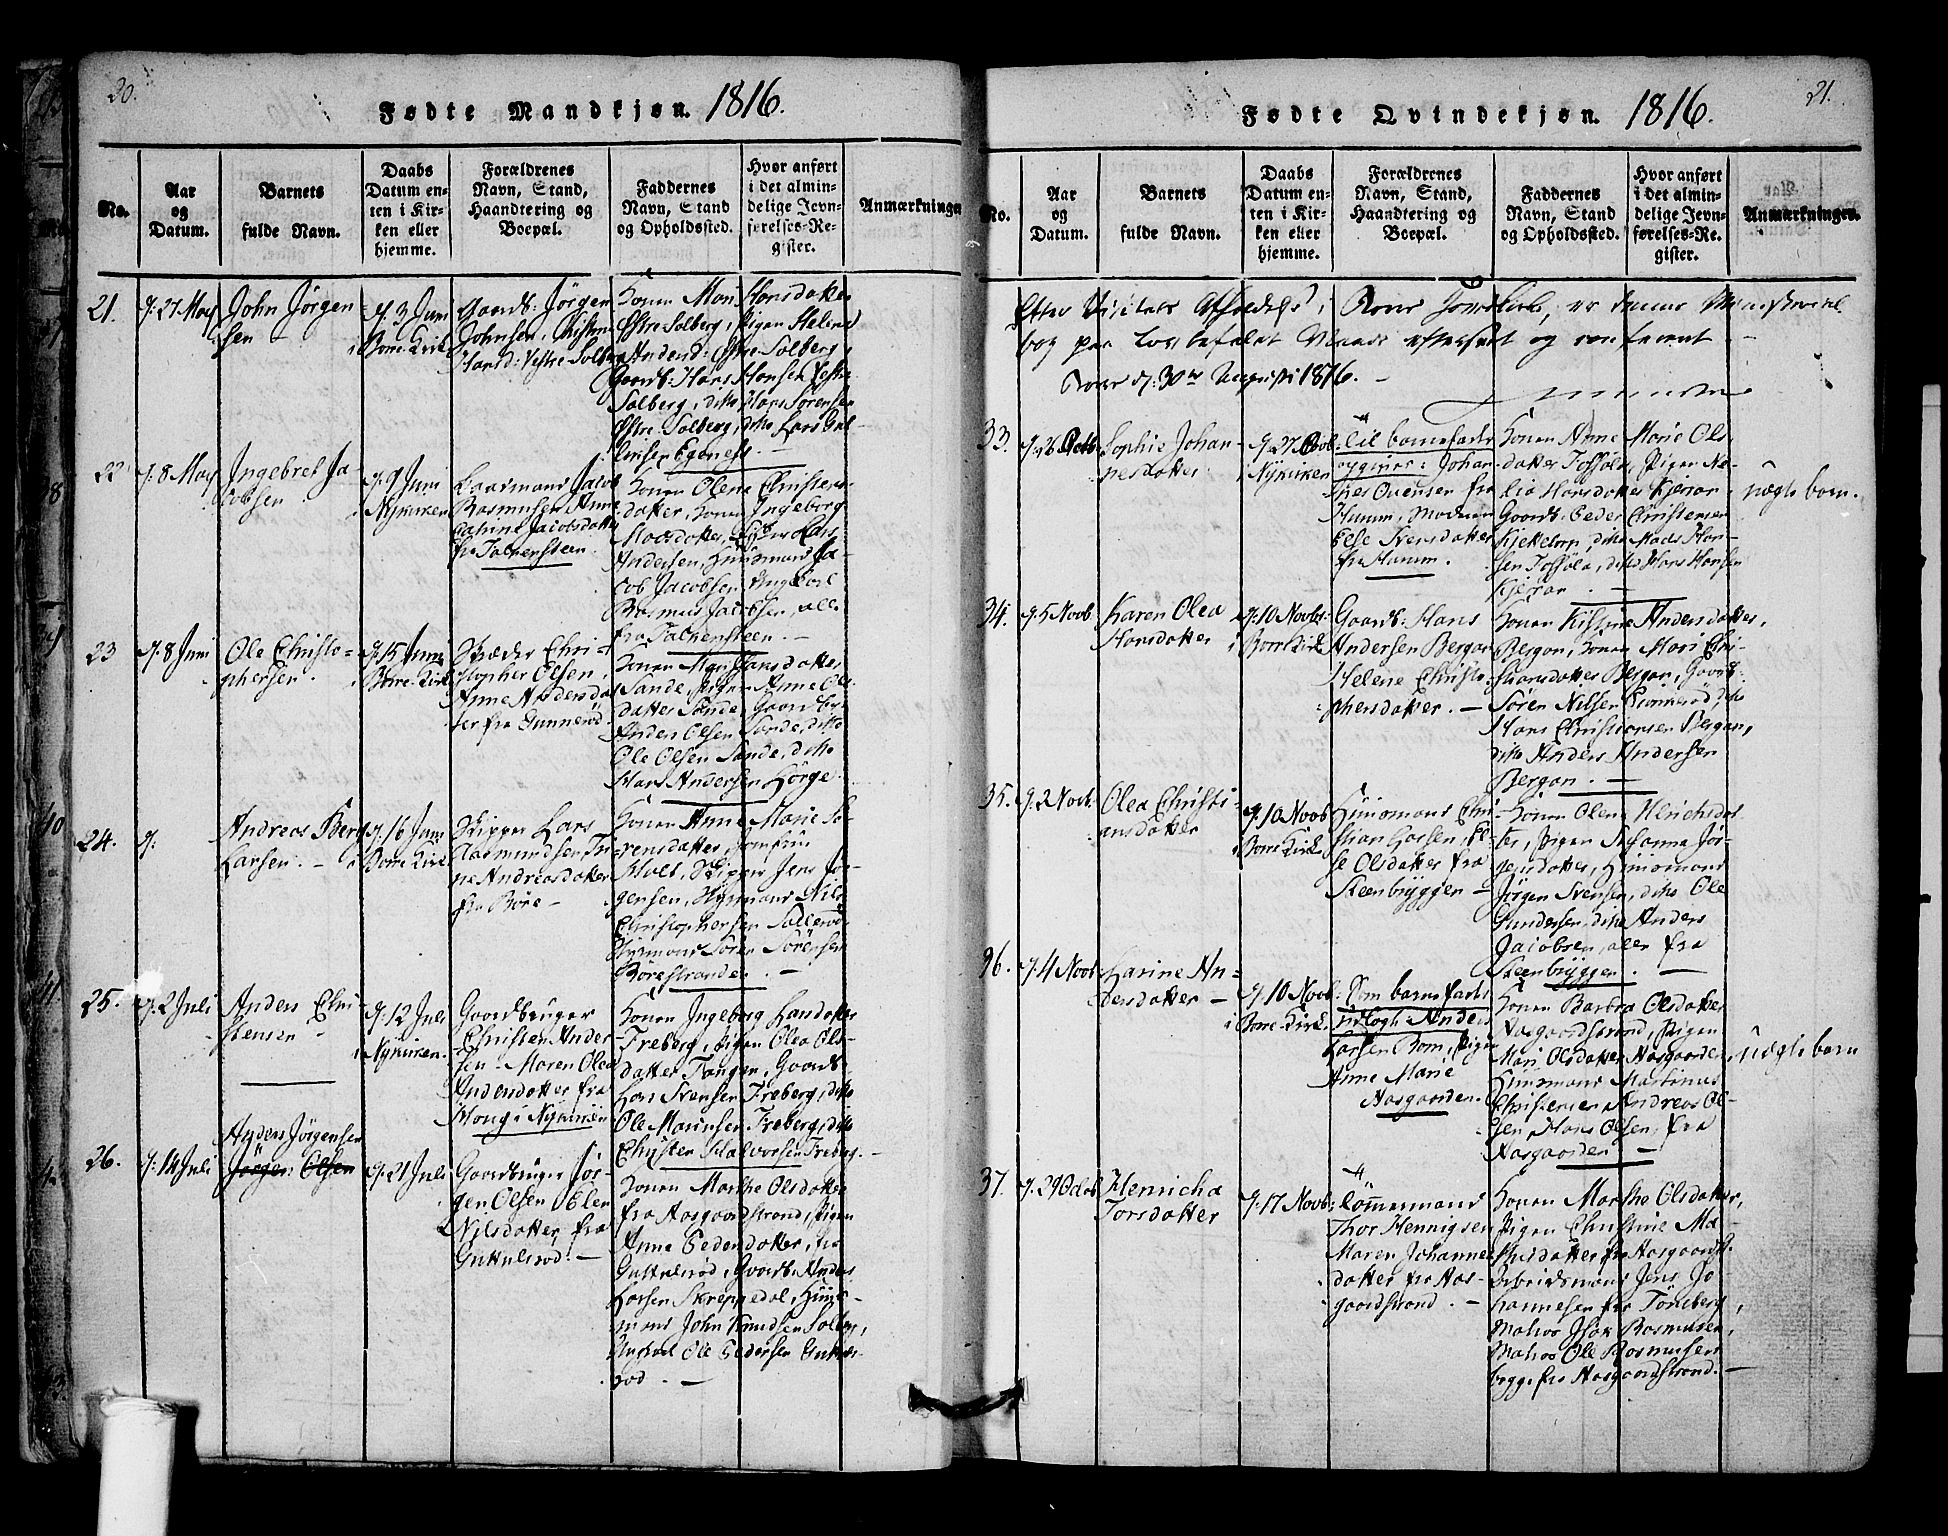 20.
Fødte Mandkjøn. 1816.
No.
Aar
og
Datum.
Barnets
fulde Navn.
Daabs
Datum en-
ten i Kir-
ken eller
hjemme.
Forældrenes
Navn, Stand,
Haandtering og
Boepæl.
Faddernes
Navn, Stand
og Opholdssted.
Hvor anført
i det almin-
delige Jevn-
førelses-Re-
gister.
Anmærkninger
21.
d. 27 May
John Jørgen
sen
d. 3 Juni
i Borre Kirk
Gaardb: Jørgen
Johnsen,
Hansd: Vestre Solberg
Konen Mari Hansdatter
Østre Solberg, Pigen Helene
Andersd: Østre Solberg,
Gaardb: Hans Hansen Vestre
Solberg, ditto Hans Sørensen
Østre Solberg, ditto Lars Gul
22
d. 8 May
Ingebret Ja
cobsen
d. 9 Juni
i Nykirken
Jacob
Rasmussen Anne
Cathrine Jacobsdatter
fra Falkensteen.
Konen Olene Christens
datter, Konen Ingeborg
Lars
Andersen, Huusmand Ja
cob Jacobsen, Ungkarl
Rasmus Jacobsen, alle
fra Falkensteen. –
23
d. 8 Juni
Ole Christo-
phersen.
d. 15 Juni
i Borre Kirk
Skræder Chri-
stopher Olsen,
Anne Andersdat
ter fra Gunnerød
Konen Mari Hansdatter
Sande, Pigen Anne Ols
datter Sande, Gaardbr:
Anders Olsen Sande, ditto
Ole Olsen Sande, ditto
Hans Andersen Hørge
24.
d.
Andreas Berg
Larsen. –
d. 16 Juni
i Borre Kirk
Skipper Lars
Aasmundsen, Tri
ne Andreasdatter
fra Borre –
Konen Anne Marie Sø
rensdatter, Jomfru
Holst, Skipper Jens Jør
gensen, Huusmand Nils
Christophersen
Huusmand Søren Sørensen
Borrestranden. –
25.
d. 2 Juli
Anders Chri
stensen –
d. 12 Juli
i Nykirken.
Gaardbruger
Christen Ander
sen – Maren Olea
Andersdatter fra
Houg i Nykirken
Konen Ingeborg
Freberg, Pigen Olea Ols
datter Tangen, Gaardb:
Lars Svensen Freberg, ditto
Ole Mariusen Freberg, ditto
Christen Halvorsen Freberg. –
26.
d. 14 Juli
Anders Jørgensen
Jørgen Olsen
d. 21 Juli
Gaardbruger Jør
gen Olsen Elen
Nilsdatter fra
Gulkulsrod. –
Konen Marthe Olsdatter
fra Aasgaardstrand, Pigen
Anne Pedersdatter, fra
Gulkulsrød, Gaardb: Anders
Larsen Skreppedal, Huus-
mand John Knudsen Solberg,
Ungkarl Ole Pedersen Gulkuls-
rod. –
21.
Fødte Qvindekjøn. 1816.
No.
Aar
og
Datum.
Barnets
fulde Navn.
Daabs
Datum en-
ten i Kir-
ken eller
hjemme.
Forældrenes
Navn, Stand,
Haandtering og
Boepæl.
Faddernes
Navn, Stand
og Opholdssted.
Hvor anført
i det almin-
delige Jevn-
førelses-Re-
gister.
Anmærkninger.
Efter Visitats Afholdelse i Borre er denne Ministerial
bog paa befalet Maade efterseet og
Borre d: 30te Augusti 1816. –
33.
d. 26 Octb
Sophie Johan-
nesdatter
d. 27 Octob:
i Nykirken
Til barnefader
opgives: Johan-
nes Svensen fra
Hanum, Moderen
Else Svensdatter
fra Hanum.
Konen Anne Marie Ols
datter Fossøla, Pigen Ma-
lia Hansdatter Kjerran
Gaardb: Peder Christensen
Kjeketorp, ditto Mads Han-
sen Fossøla, ditto Hans Hansen
Kjerran. –
uægte barn.
34.
d. 5 Novb.
Karen Olea
Hansdatter
d. 10 Novbr
i Borre Kirk
Gaardb: Hans
Andersen Bergan
Helene Christo
phersdatter. –
Konen Kistine Andersdatter,
Bergan, Konen Mari Chri-
stiansdatter Bergan, Gaardb
Søren Nilsen ditto
Hans Christiansen Bergan,
ditto Anders Andersen
Bergan. –
35.
d. 2 Novb.
Olea Christi-
ansdatter
d. 10 Novb
i Borre Kirk
Huusmand Chri-
stian Larsen, El-
se Olsdatter fra
Steenbryggen –
Konen Olene Ulrichsdat
ter, Pigen Johanna Jør-
gensdatter, Huusmand
Jørgen Svensen, ditto Ole
Gundersen, ditto Anders
Jacobsen, alle fra
Steenbryggen. –
36.
d. 4 Novb
Karine An-
dersdatter –
d. 10 Novb:
i Borre Kirk.
Som barnefader
udlagt: Anders
Larsen Rom, Pigen
Anne Marie
Aasgaarden.
Konen Barbra Olsdatter
Aasgaardstrand, Pigen
Mari Olsdatter Aasgaarden,
Huusmand Martinus
Christensen, Andreas Ol-
sen, Hans Olsen, fra
Aasgaarden –
uægte barn
37.
d. 29 Octob
Henricha
Torsdatter
d. 17 Novb:
Tømmermand
Thor Hennigsen
Maren Johannes
datter fra Aas-
gaardstrand. –
Konen Marthe Olsdatter,
Pigen Christine Ma-
thisdatter fra Aasgaardst.
Arbeidsmand Jens Jo
hannesen fra Tønsberg,
Matros Isak Rasmusen,
Matros Ole Rasmusen
begge fra Aasgaardstrand. –